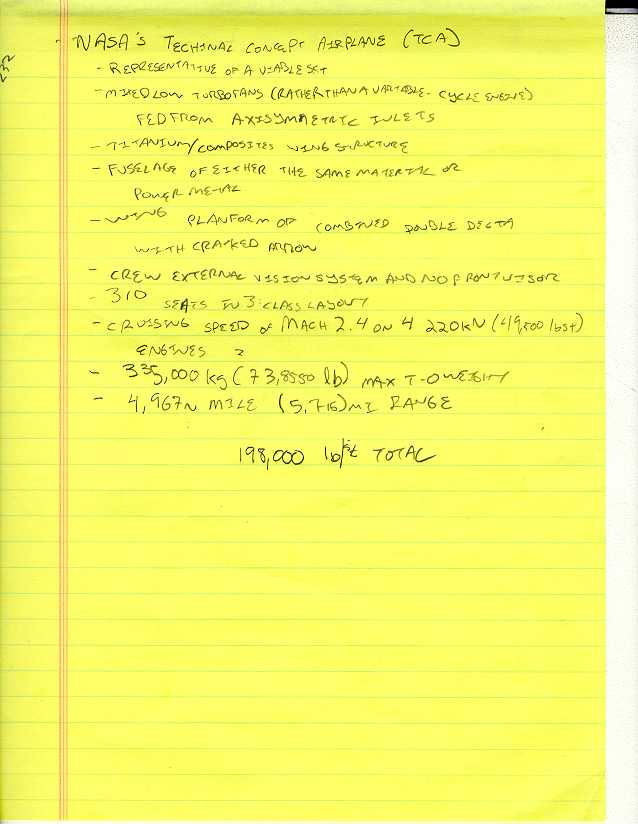 232
- NASA's TECHINAL CONCEPT AIRPLANE (TCA)
- REPRESENTATIVE OF A VIABLE SST
- MIXED LOW TURBOFANS (RATHER THAN A VARIABLE-CYCLE ENGINE)
FED FROM AXISYMMETRIC INLETS
- TITANIUM/COMPOSITES WING STRUCTURE
- FUSELAGE OF EITHER THE SAME MATERIAL OR
POWER METAL
- WING PLANFORM OF COMBINED DOUBLE DELTA
WITH CRACKED ARROW
- CREW EXTERNAL VISION SYSTEM AND NO FRONT VISOR
- 310 SEATS IN 3 CLASS LAYOUT
- CRUISING SPEED OF MACH 2.4 ON 4 220KN (49,500 lbst)
ENGINES
- 335,000 kg (73,8550 lb) MAX T-O WEIGHT
- 4,967N MILE (5,716) MI RANGE
198,000 lb/st TOTAL